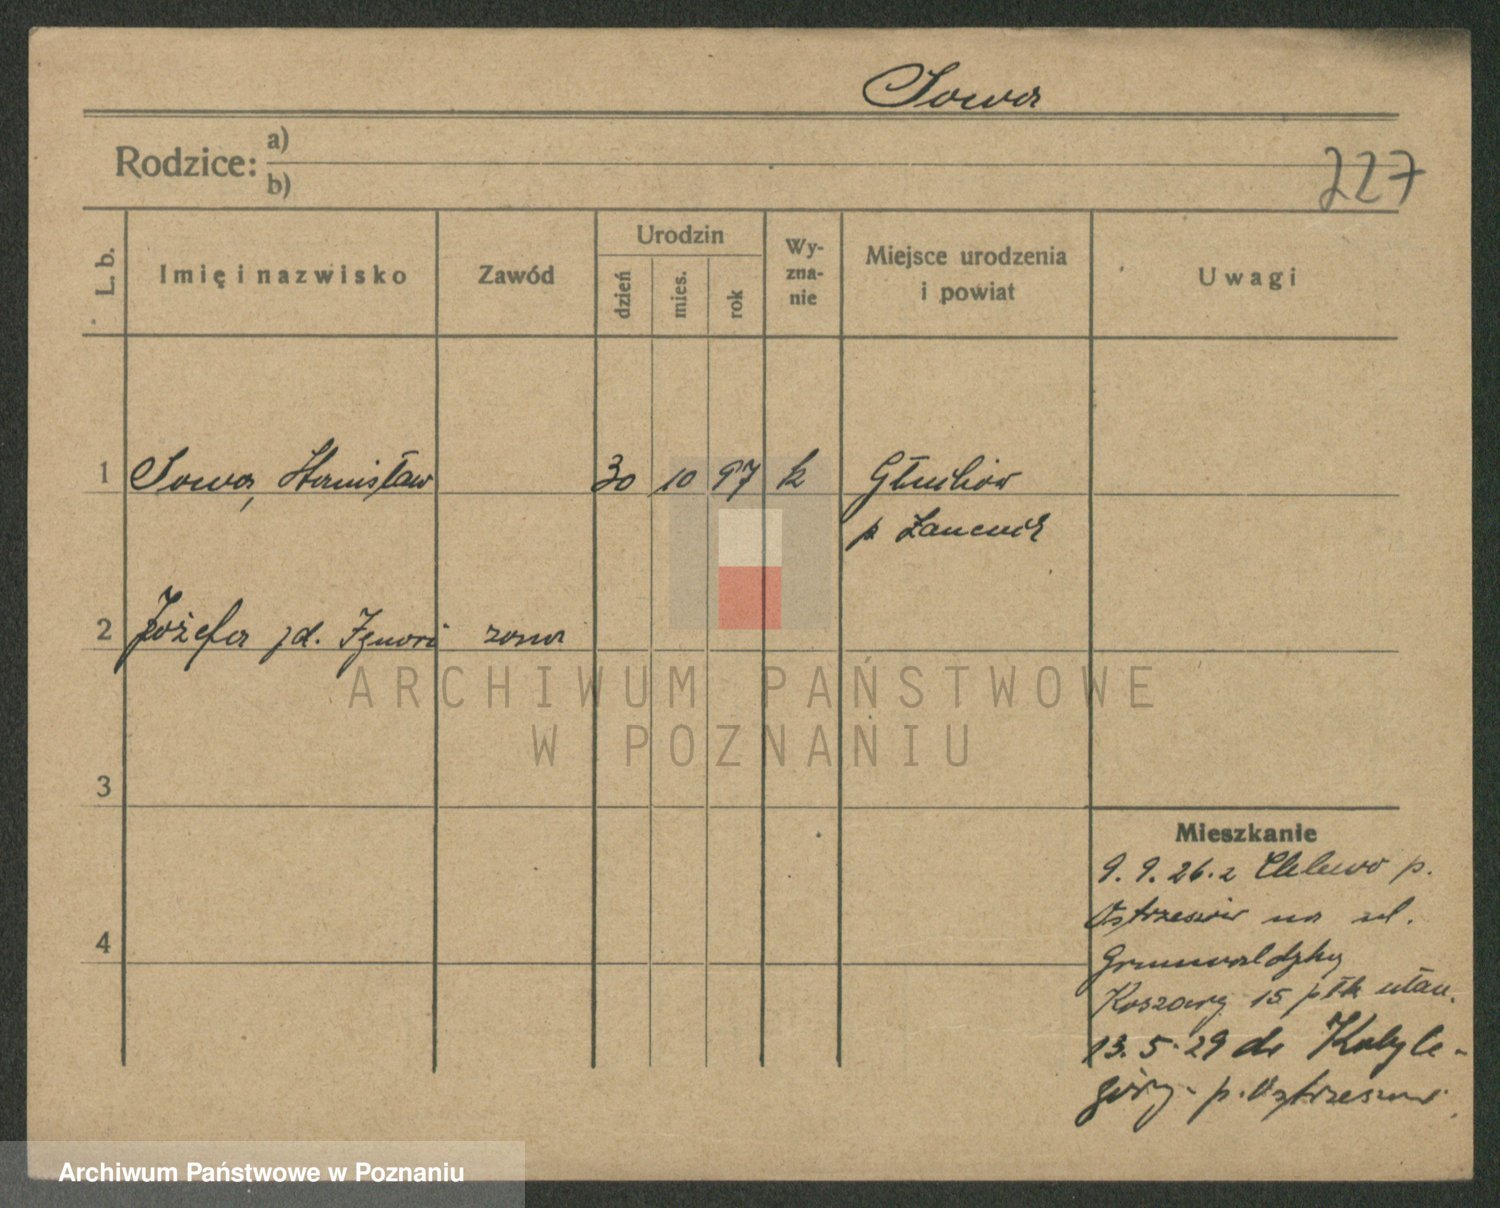 Sowa
Rodzice: a)
b)
227
L. b.
Imię i nazwisko
Zawód
Urodzin
dzień
mies.
rok
Wy-
zna-
nie
Miejsce urodzenia
i powiat
Uwagi
1 Sowa, Stanisław 30 10 97 k Głuchów
p Łancuck
2 Józefa zd. Ignori zona
3
4
Mieszkanie
9. 9. 26. z p.
Ostrzeszów na ul.
Grunwaldzką
Koszary 15 płk ułan.
13. 5. 29 do Kobyle-
góry - p. Ostrzeszów.
ARCHIWUM PAŃSTWOWE
W POZNANIU
Archiwum Państwowe w Poznaniu